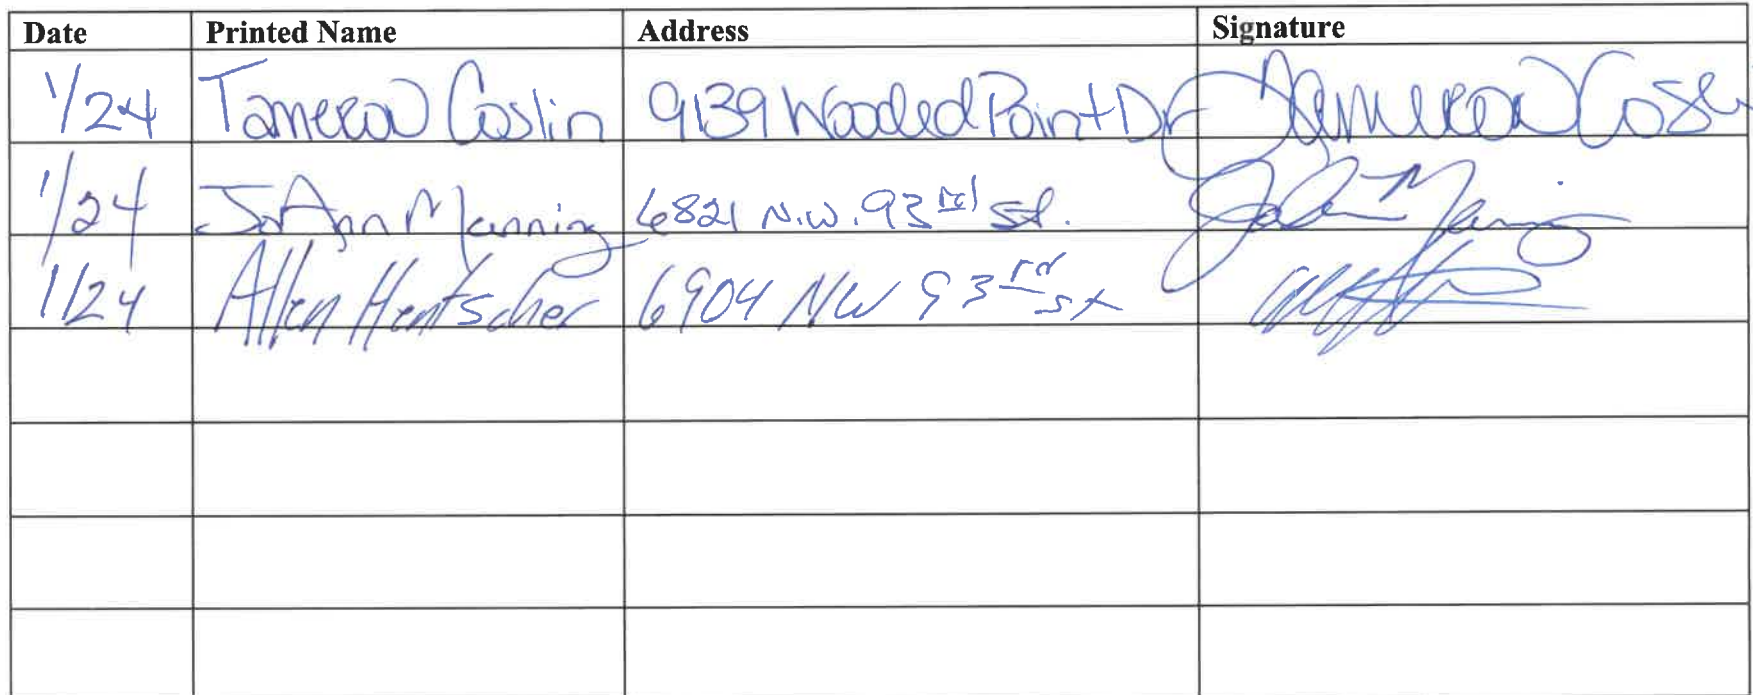 Date Printed Name Address Signature
1/24 Tameron Coslin 9139 Wooded Point Dr
1/24 JoAnn Manning 6821 N.W. 93rd St.
1/24 Allen Hentscher 6904 NW 93rd St